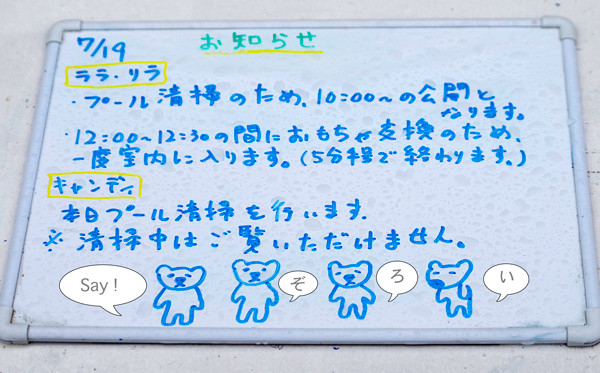 7/19
お知らせ
ララ・リラ
・プール清掃のため、10:00～の公開と
なります。
・12:00～12:30の間におもちゃ支換のため、
一度室内に入ります。(5分程で終わります。)
キャンディ
本日プール清掃を行います.
※清掃中はご覧いただけません。
Say！
ぞ
ろ
い